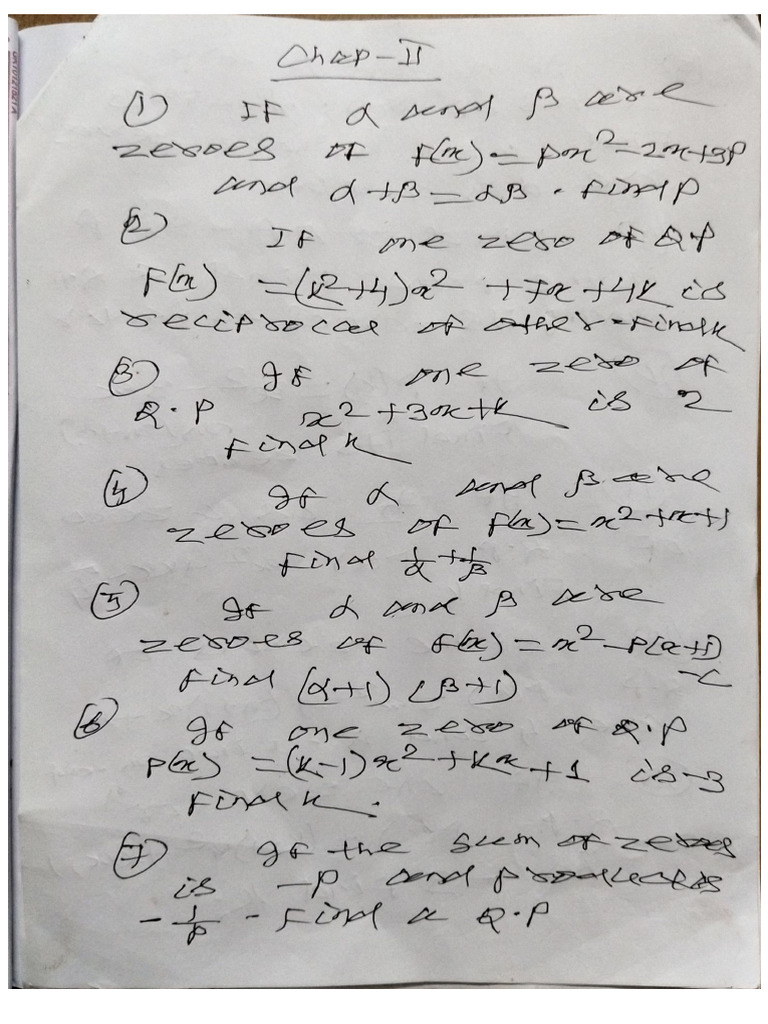 Chap-II
(1) If α and β are
zeroes of f(x) = px²-2x+3p
and α+β = αβ. find p
(2) If one zero of Q.P
F(x) = (k²+4)x² +7x+4k is
reciprocal of other-find k
(3) If one zero of
Q.P x²+3x+k is 2
Find k
(4) If α and β are
zeroes of f(x)=x²+x+1
Find 1/α+1/β
(5) If α and β are
zeroes of f(x) = x²-P(x+1)
-c
find (α+1) (β+1)
(6) If one zero of Q.P
P(x) = (k-1)x²+kx+1 is -3
Find k.
(7) If the sum of zeroes
is -P and product is
-1/p - Find a Q.P